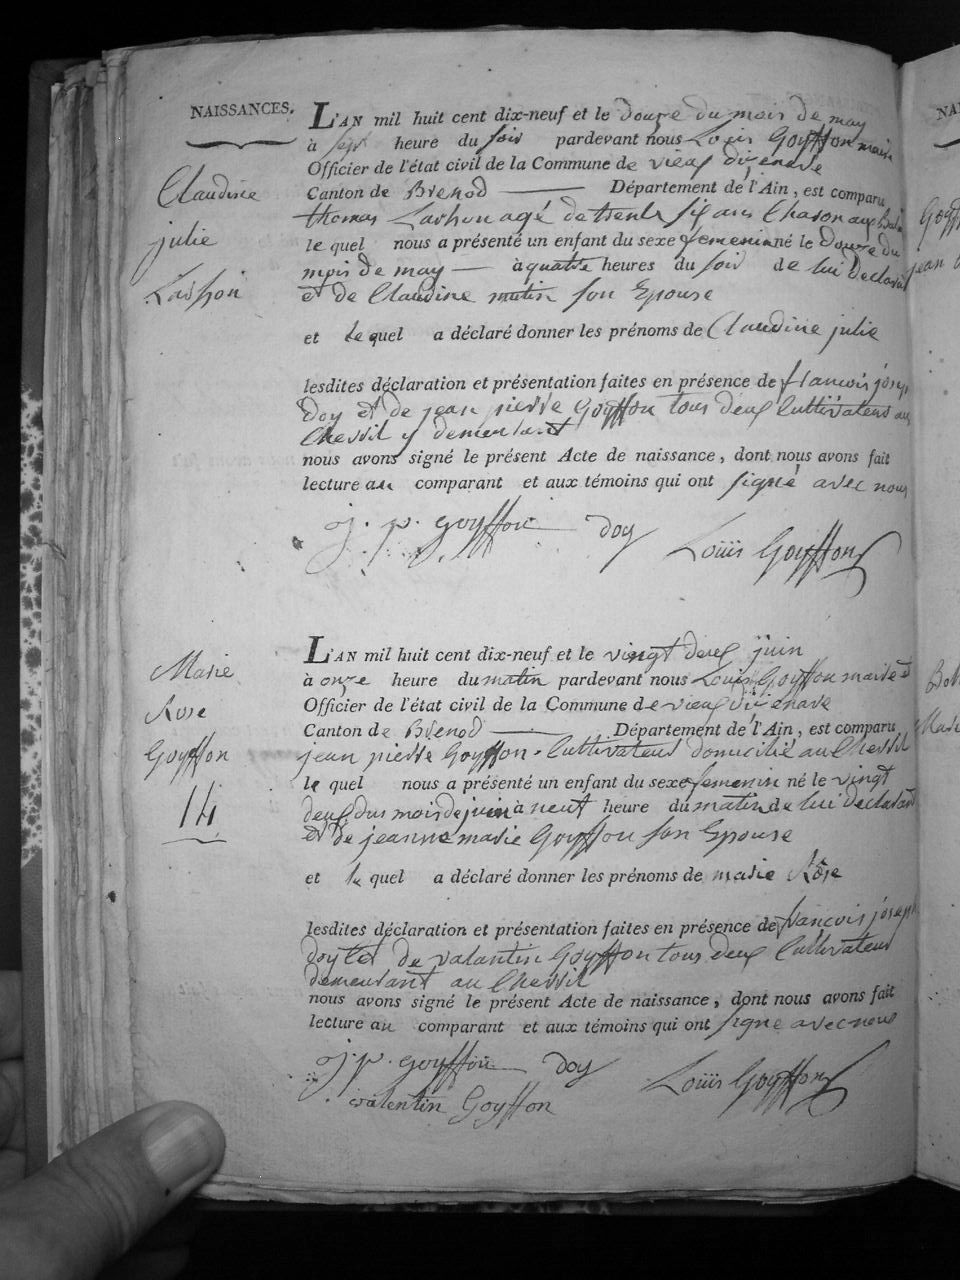 NAISSANCES.
Claudine
julie
L'AN mil huit cent dix-neuf et le douze du mois de may
à sept heure du soir pardevant nous Louis Goyffon maire
Officier de l'état civil de la Commune de vieux d'izenave
Canton de Brenod Département de l'Ain, est comparu
thomas agé de trente six ans
le quel nous a présenté un enfant du sexe femenin né le douze du
mois de may à quatre heures du soir de lui declarant
et de Claudine matin son Epouse
et le quel a déclaré donner les prénoms de Claudine julie
lesdites déclaration et présentation faites en présence de francois josep
Doy et de jean pierre Goyffon tous deux Cultivateurs au
Chevril y demeurant
nous avons signé le présent Acte de naissance, dont nous avons fait
lecture au comparant et aux témoins qui ont signé avec nous
j. p. goyffon doy Louis Goyffon
Marie
Rose
Goyffon
14
L'AN mil huit cent dix-neuf et le vingt deux juin
à onze heure du matin pardevant nous Louis Goyffon maire et
Officier de l'état civil de la Commune de vieux d'izenave
Canton de Brenod Département de l'Ain, est comparu
jean pierre Goyffon Cultivateur domicilié au Chevril
le quel nous a présenté un enfant du sexe femenin né le vingt
deux dus mois de juin à neuf heure du matin de lui declarant
et de jeanne marie Goyffon son Epouse
et le quel a déclaré donner les prénoms de marie Rose
lesdites déclaration et présentation faites en présence de francois joseph
doy et de valantin Goyffon tous deux Cultivateur
demeurant au Chevril
nous avons signé le présent Acte de naissance, dont nous avons fait
lecture au comparant et aux témoins qui ont signe avec nous
j. p. goyffon doy Louis Goyffon
valentin Goyffon